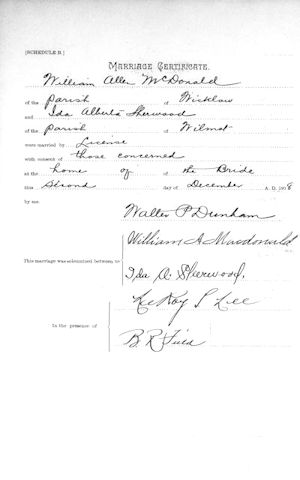 [SCHEDULE B.]
MARRIAGE CERTIFICATE.
William Allen McDonald
of the Parish of Wicklow
and Ida Alberta Sherwood
of the Parish of Wilmot
were married by License
with consent of those concerned
at the home of of the Bride
this second day of December A. D. 1908
by me
Walter P Dunham
William A. Macdonald
This marriage was solemnized between us
Ida A. Sherwood.
LeRoy S Lee
In the presence of
B. R. Field